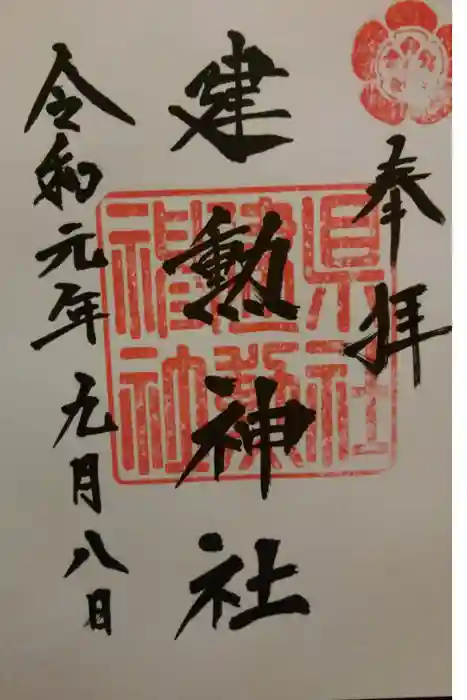 奉拝
建勲神社
令和元年九月八日
県社
建勲
神社